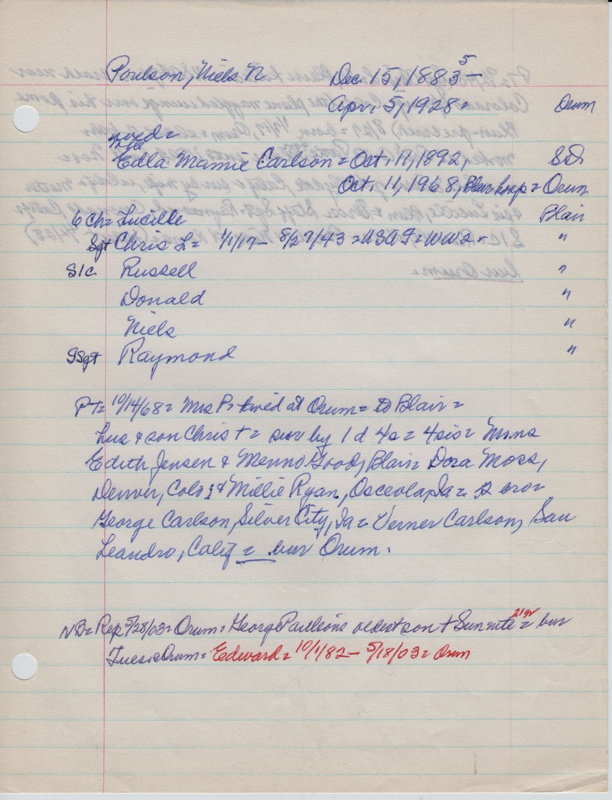 Poulson, Niels N Dec 15, 1883 5 -
Apr. 5, 1928 = Orum
wed =
Edla Mamie Carlson = Oct. 17, 1892, SD
Oct. 11, 1968, Blair hosp = Orum
6 Ch = Lucille Blair
Sgt Chris L = 1/1/17 - 8/27/43 = USAF = WW2 - "
S1C Russell "
Donald "
Niels "
SSgt Raymond "
PT = 10/14/68 = Mrs P = lived at Orum = to Blair =
hus & son Chris † = surv by 1 d 4 s = 4 sis = Mmes
Edith Jensen & Menno Good, Blair = Dora Moss,
Denver, Colo; & Millie Ryan, Osceola, Ia = 2 bro =
George Carlson, Silver City, Ia = Verner Carlson, San
Leandro, Calif = bur Orum.
NB = Rep 5/28/03 = Orum = George Paulson's oldest son † Sun nite 21 yr = bur
Tues = Orum = Edward = 10/1/82 - 5/18/03 = Orum